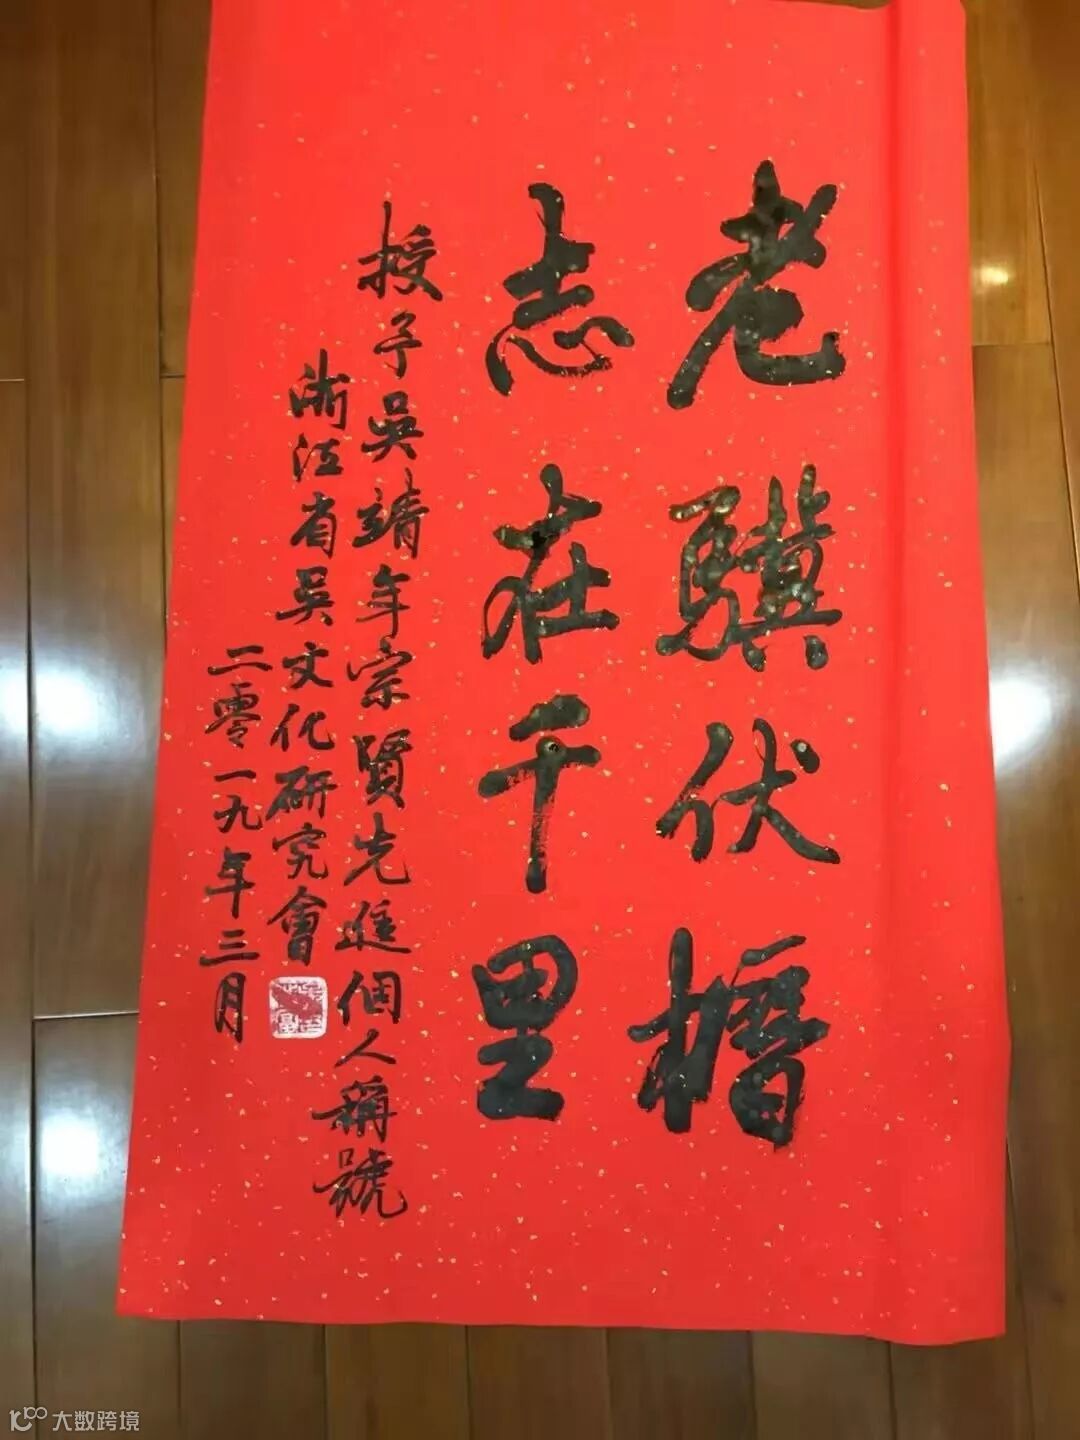 老驥伏櫪
志在千里
授予吳靖年宗賢先進個人稱號
浙江省吳文化研究會
二零一九年三月
大数跨境